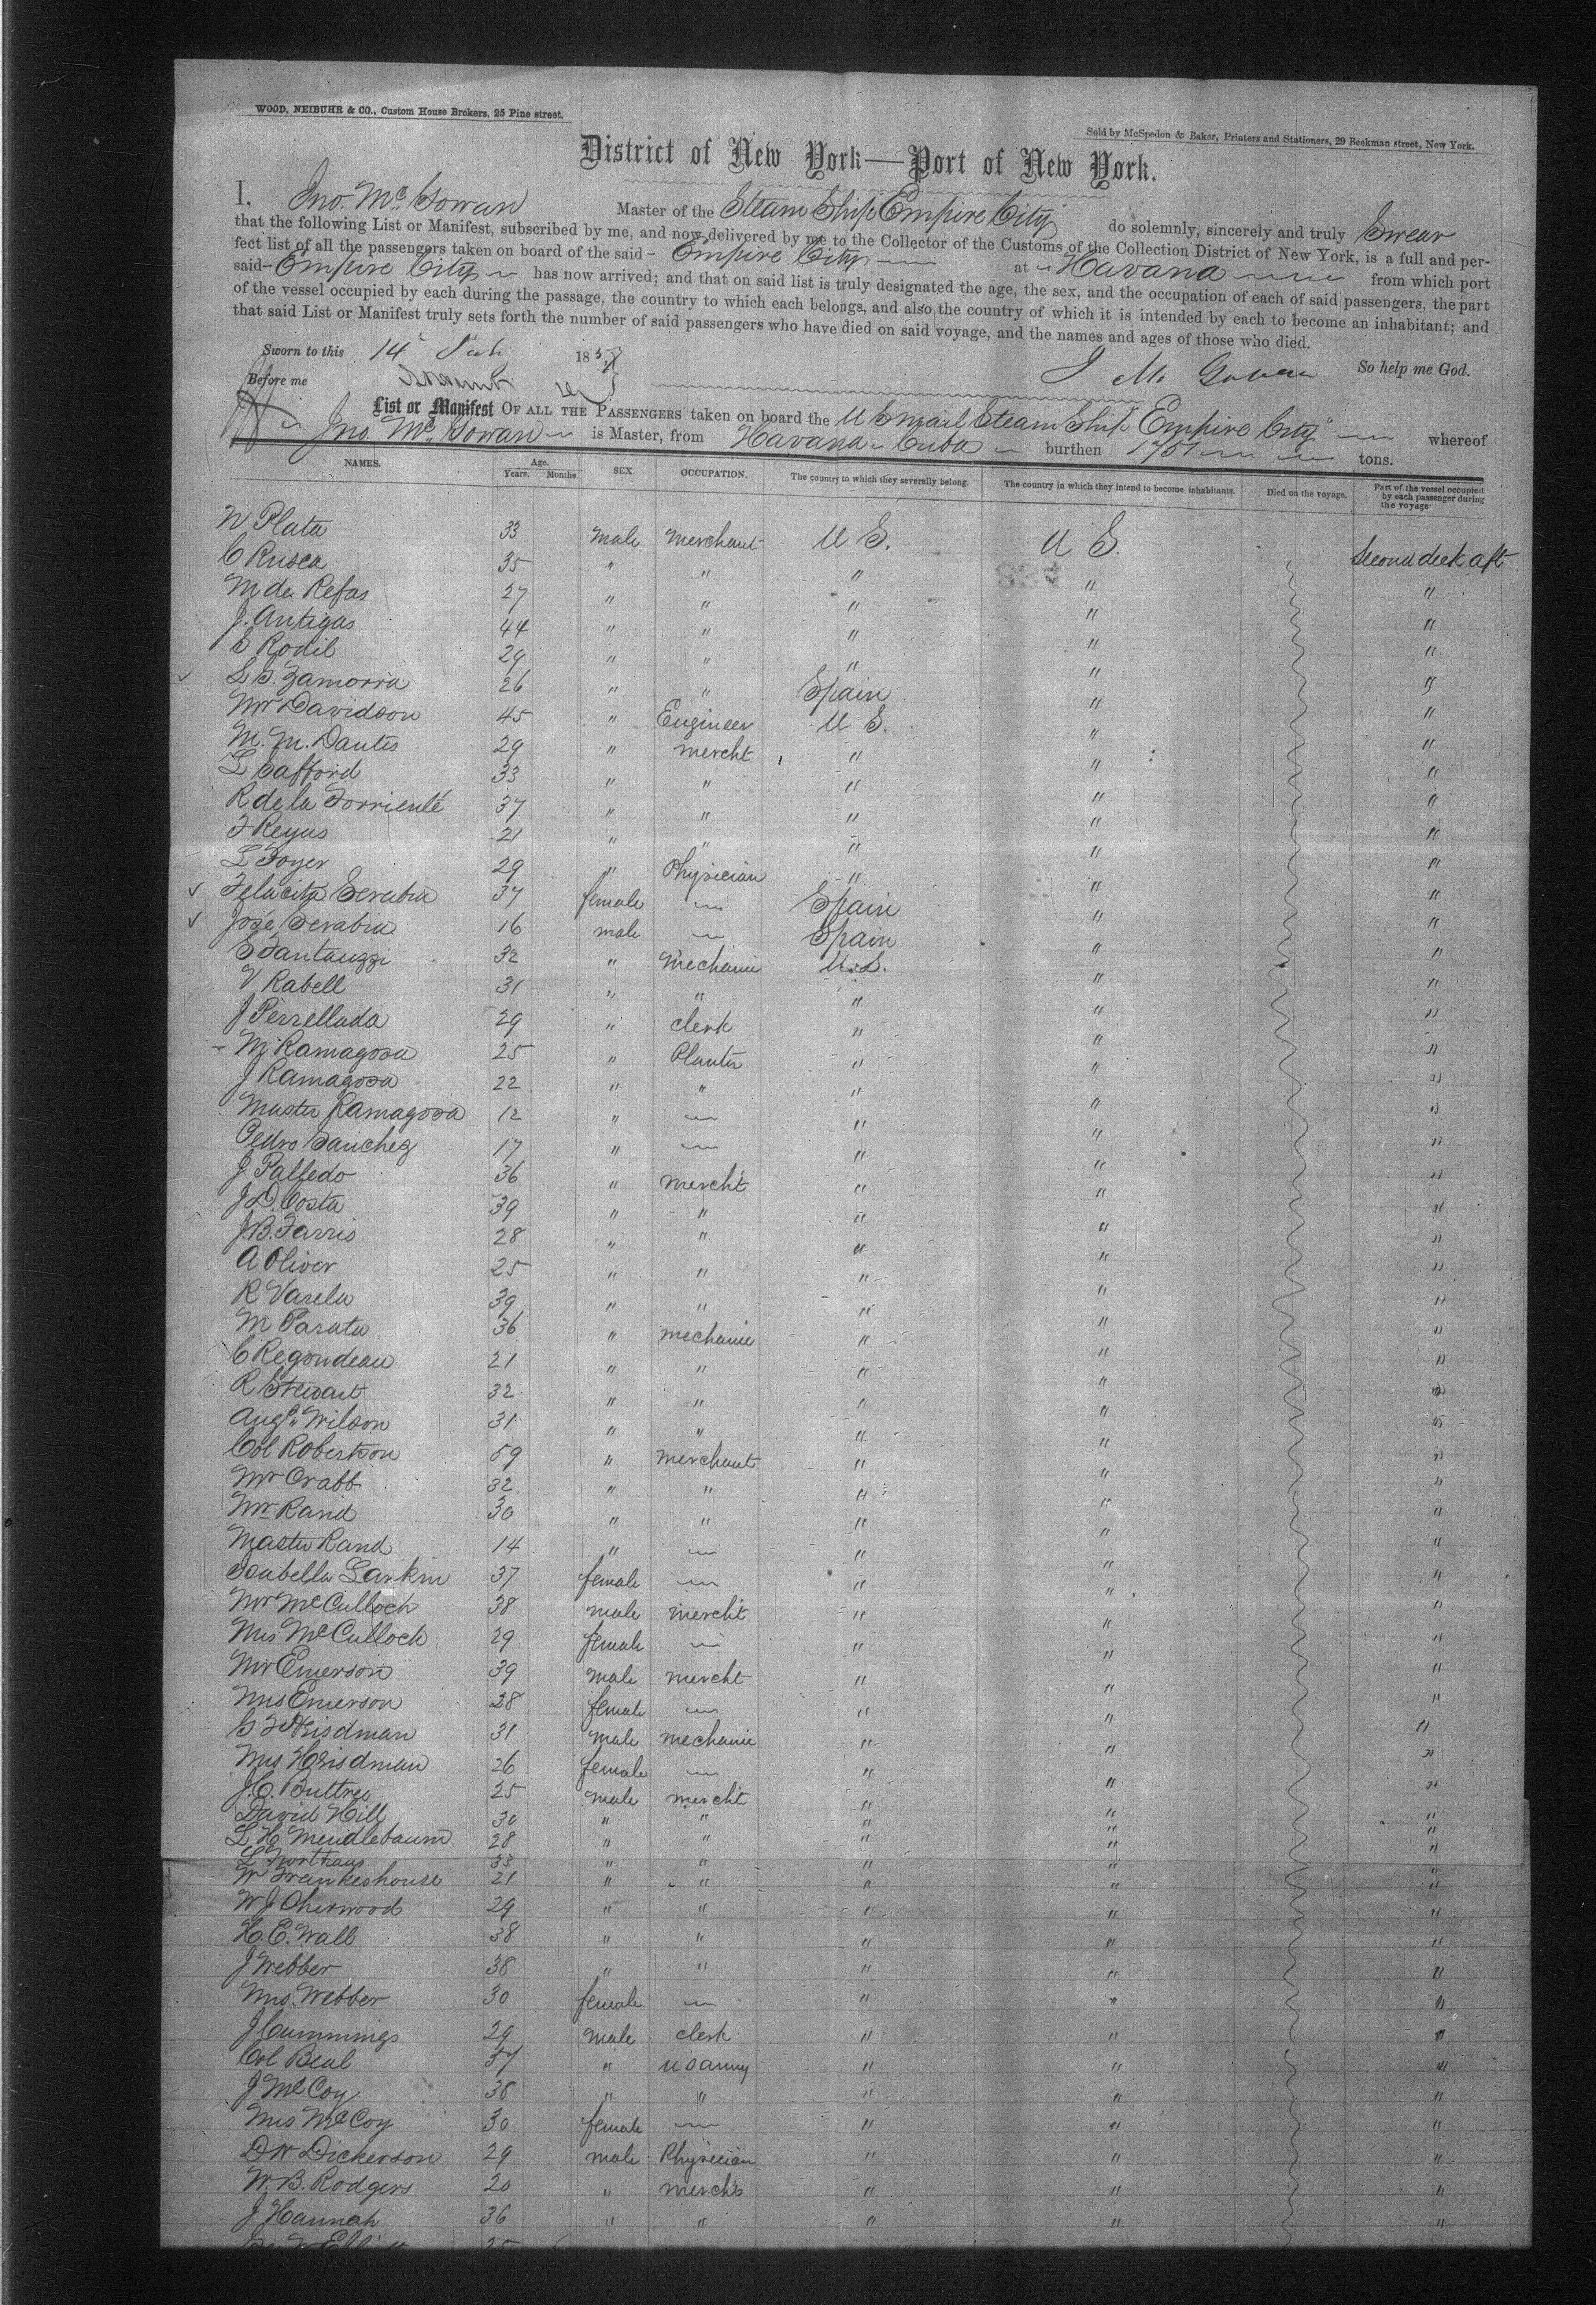 WOOD, NEIBUHR & CO., Custom House Brokers, 25 Pine street.
Sold by McSpedon & Baker, Printers and Stationers, 29 Beekman street, New York.
District of New York—Port of New York.
I. Jno. McGowan Master of the Steam Ship Empire City do solemnly, sincerely and truly Swear
that the following List or Manifest, subscribed by me, and now delivered by me to the Collector of the Customs of the Collection District of New York, is a full and per-
fect list of all the passengers taken on board of the said Empire City at Havana from which port
said Empire City has now arrived; and that on said list is truly designated the age, the sex, and the occupation of each of said passengers, the part
of the vessel occupied by each during the passage, the country to which each belongs, and also the country of which it is intended by each to become an inhabitant; and
that said List or Manifest truly sets forth the number of said passengers who have died on said voyage, and the names and ages of those who died.
Sworn to this 14 185 So help me God.
Before me J McGowan
List or Manifest OF ALL THE PASSENGERS taken on board the U S Mail Steam Ship "Empire City" whereof
Jno. McGowan is Master, from Havana Cuba burthen 1751 tons.
NAMES. Age. Years. Months SEX. OCCUPATION. The country to which they severally belong. The country in which they intend to become inhabitants. Died on the voyage. Part of the vessel occupied by each passenger during the voyage
N Plata 33 male merchant U S. U S. Second deck aft
C Rusca 35 " " " " "
M de Refas 27 " " " " "
J. Antigas 44 " " " " "
S Rodil 29 " " " " "
L G. Zamorra 26 " " Spain " "
Mr Davidson 45 " Engineer U S. " "
M. M. Dantes 29 " mercht " " "
L Safford 33 " " " " "
R de la Torriente 37 " " " " "
F Reyus 21 " " " " "
L Foyer 29 " Physician " " "
Felacita Serabia 37 female — Spain " "
José Serabia 16 male — Spain " "
S Fantauzzi 32 " Mechanic U.S. " "
V Rabell 31 " " " " "
J Perrellada 29 " clerk " " "
M Ramagosa 25 " Planter " " "
J Ramagosa 22 " " " " "
Master Ramagosa 12 " — " " "
Pedro Sanchez 17 " — " " "
J. Palfedo 36 " mercht " " "
J D. Costa 39 " " " " "
J. B. Farris 28 " " " " "
A Oliver 25 " " " " "
R Varela 39 " " " " "
M Parata 36 " mechanic " " "
C Regondeau 21 " " " " "
R Stewart 32 " " " " "
Augs Wilson 31 " " " " "
Col Robertson 59 " merchant " " "
Mr Crabb 32 " " " " "
Mr Rand 30 " " " " "
Master Rand 14 " — " " "
Isabella Larkin 37 female — " " "
Mr McCulloch 38 male mercht " " "
Mrs McCulloch 29 female — " " "
Mr Emerson 39 male mercht " " "
Mrs Emerson 28 female — " " "
G F Hrisdman 31 male mechanic " " "
Mrs Hrisdman 26 female — " " "
J. C. Buttres 25 male mercht " " "
David Hill 30 " " " " "
L H Mendlebaum 28 " " " " "
L Northaus 33 " " " " "
W Frankeshouse 21 " " " " "
W J Cherwood 29 " " " " "
H. E. Wall 38 " " " " "
J Webber 38 " " " " "
Mrs. Webber 30 female — " " "
J Cummings 29 male clerk " " "
Col Beal 57 " U S army " " "
J McCoy 38 " " " " "
Mrs McCoy 30 female — " " "
D W Dickerson 29 male Physician " " "
W. B. Rodgers 20 " mercht " " "
J Hannah 36 " " " " "